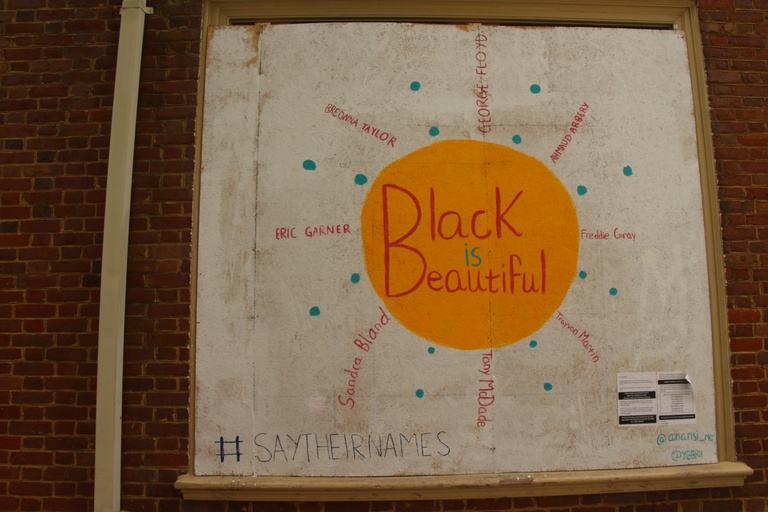 GEORGE FLOYD
BREONNA TAYLOR
AHMAUD ARBERY
ERIC GARNER
Black
is
Beautiful
Freddie Gray
Sandra Bland
Tony McDade
Trayvon Martin
#SAYTHEIRNAMES